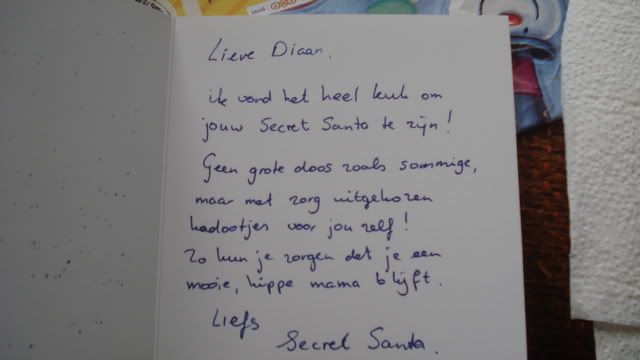 Lieve Diaan,
ik vond het heel leuk om
jouw Secret Santa te zijn!
Geen grote doos zoals sommige,
maar met zorg uitgekozen
kadootjes voor jou zelf!
Zo kun je zorgen dat je een
mooie, hippe mama blijft.
Liefs
Secret Santa.